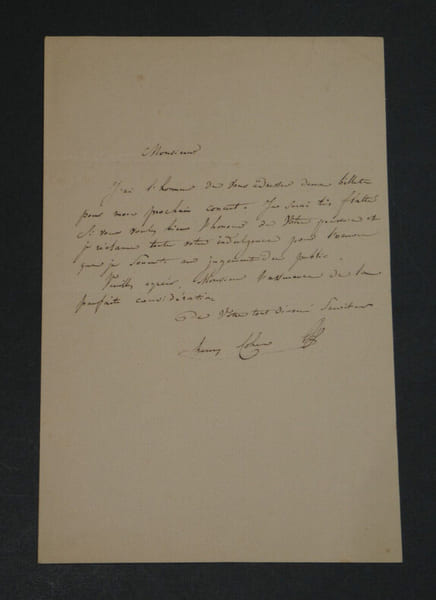 Monsieur
J'ai l'honneur de vous adresser deux billets
pour mon prochain concert. Je serai très flatté
si vous voulez bien l'honorer de votre présence et
je réclame toute votre indulgence pour l'œuvre
que je soumets au jugement du public.
Veuillez agréer, Monsieur l'assurance de la
parfaite considération
de votre tout dévoué Serviteur
Henry Cohen